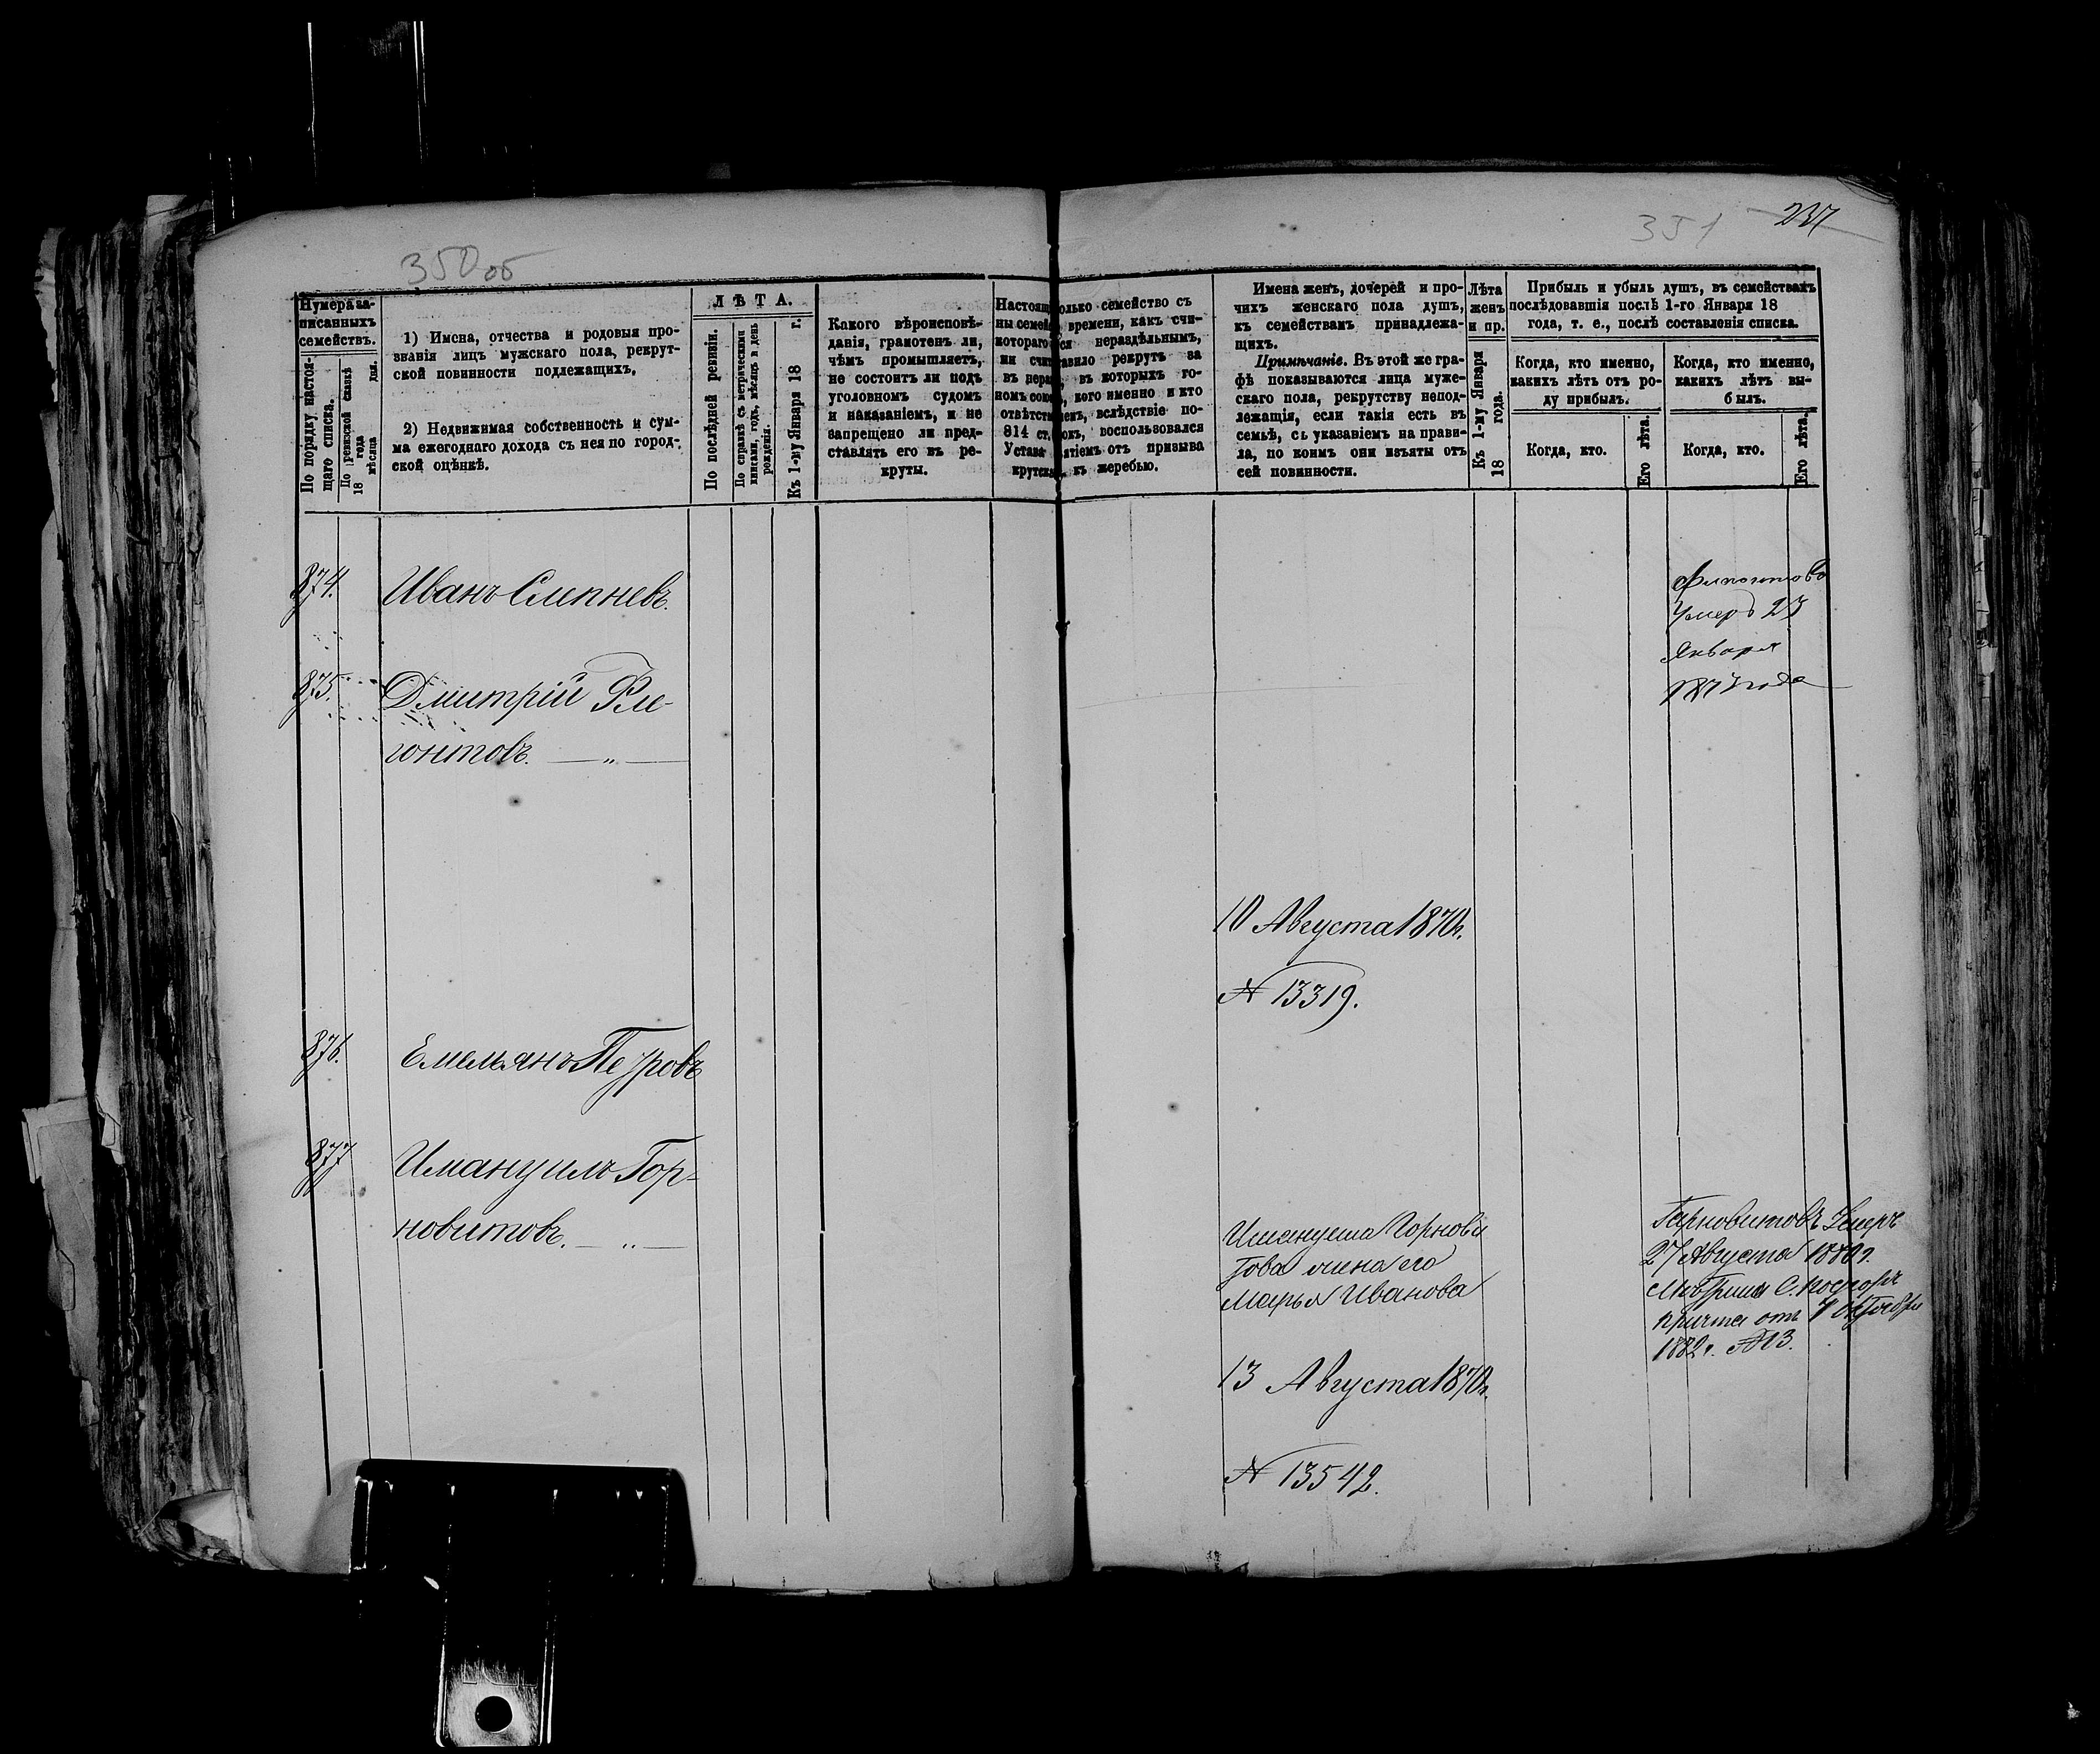 350 об
351 237
Нумера за-
писанныхъ
семействъ.
По порядку настоя-
щаго списка.
По ревизской сказкѣ
18 года
мѣсяца дня.
1) Имена, отчества и родовыя про-
званія лицъ мужскаго пола, рекрут-
ской повинности подлежащихъ.
2) Недвижимая собственность и сум-
ма ежегоднаго дохода съ нея по город-
ской оцѣнкѣ.
ЛѢТА.
По послѣдней ревизіи.
По справкѣ съ метрическими
книгами, годъ, мѣсяцъ и день
рожденія.
Къ 1-му Января 18 г.
Какого вѣроисповѣ-
данія, грамотенъ ли,
чѣмъ промышляетъ,
не состоитъ ли подъ
уголовномъ судомъ
и наказаніемъ, и не
запрещено ли пред-
ставлять его въ ре-
круты.
Настоящ олько семейство съ
ны семей времени, какъ счи-
котораго ся нераздѣльнымъ,
ни счит авило рекрутъ за
въ нераз въ которыхъ го-
номъ сою , кого именно и кто
отвѣтств іемъ, вслѣдствіе по-
814 ст. окъ, воспользовался
Устава ятіемъ отъ призыва
крутска къ жеребью.
Имена женъ, дочерей и про-
чихъ женскаго пола душъ,
къ семействамъ принадлежа-
щихъ.
Примѣчаніе. Въ этой же гра-
фѣ показываются лица муже-
скаго пола, рекрутству непод-
лежащія, если такія есть въ
семьѣ, съ указаніемъ на прави-
ла, по коимъ они изъяты отъ
сей повинности.
Лѣта
женъ
и пр.
Къ 1-му Января
18 года.
Прибыль и убыль душъ, въ семействахъ
послѣдовавшія послѣ 1-го Января 18
года, т. е., послѣ составленія списка.
Когда, кто именно,
какихъ лѣтъ отъ ро-
ду прибылъ.
Когда, кто.
Его лѣта.
Когда, кто именно,
какихъ лѣтъ вы-
былъ.
Когда, кто.
Его лѣта.
874. Иванъ Слепневъ.
Умеръ 23
Января
года
875. Дмитрій Фле-
гонтовъ. — „ —
10 Августа 1870 г.
№ 13319.
876. Емельянъ Петровъ
877 Имануилъ Гор-
новитовъ. — „ —
Имануила Горнови
това жена его
Марья Иванова
Горновитовъ Умеръ
27 Августа 1880 г.
причта отъ 7 Октября
1882 г. № 13.
13 Августа 1870 г.
№ 13542.